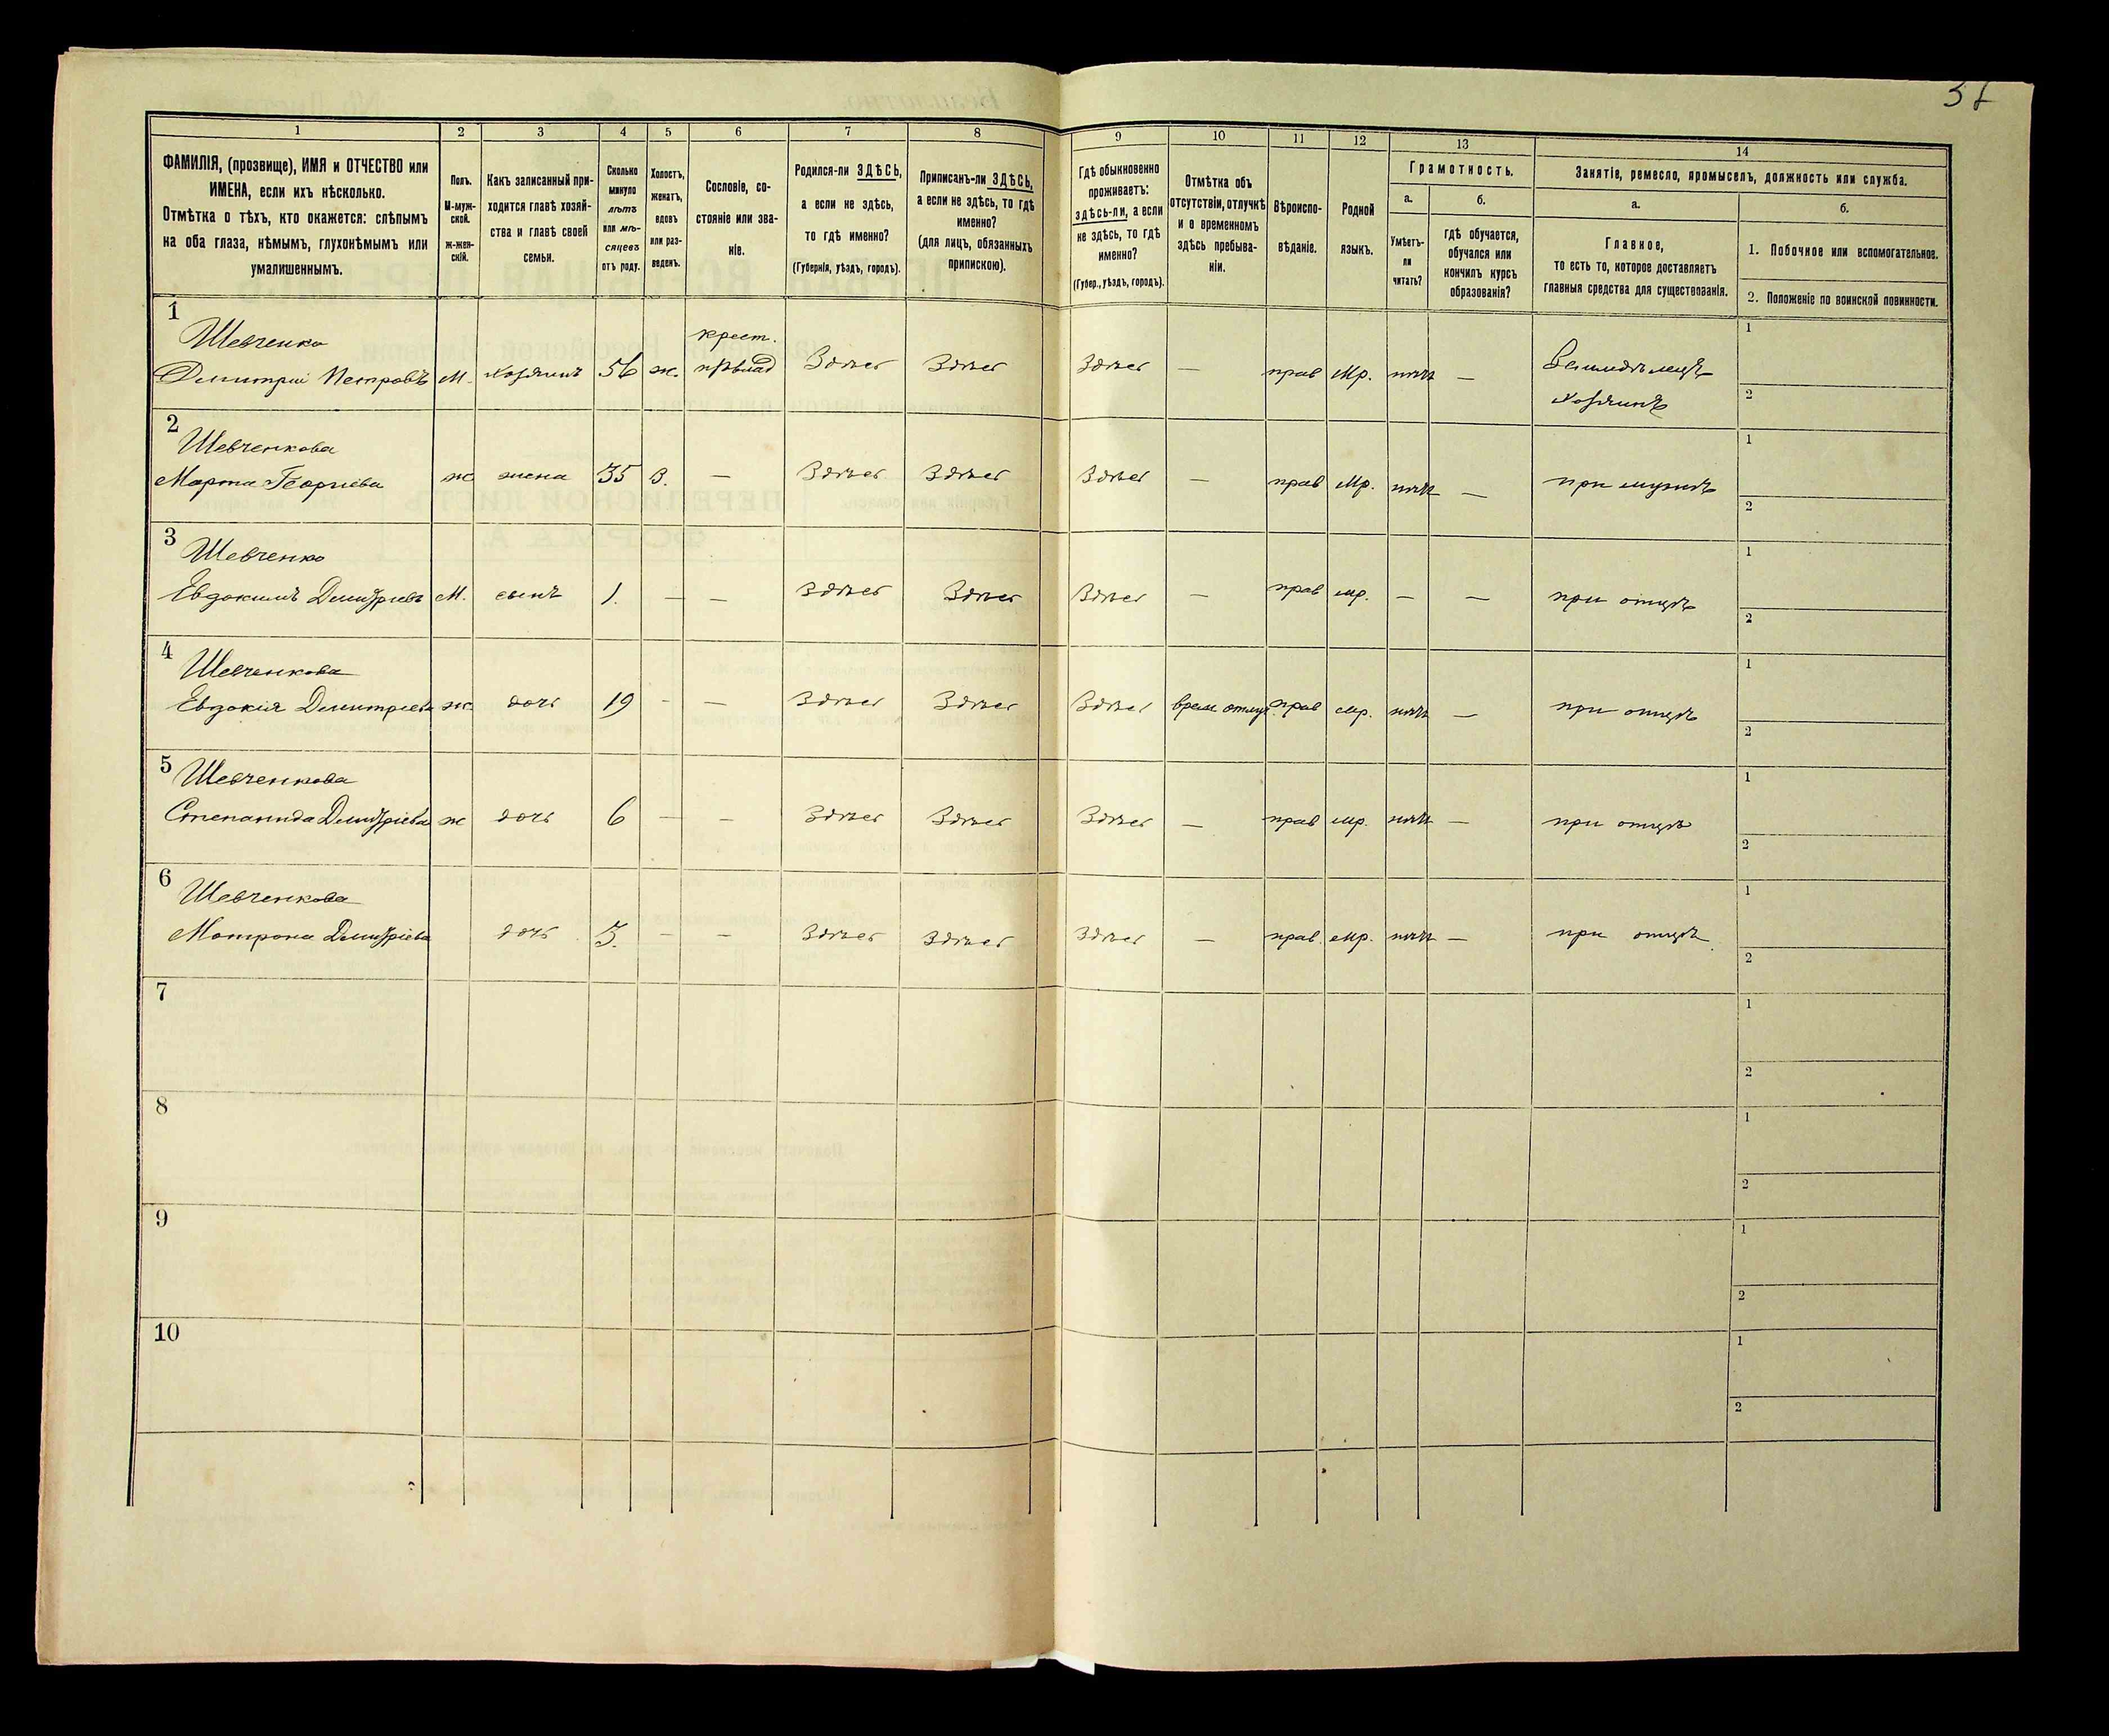 37
1 2 3 4 5 6 7 8 9 10 11 12 13 14
ФАМИЛІЯ, (прозвище), ИМЯ и ОТЧЕСТВО или
ИМЕНА, если ихъ нѣсколько.
Отмѣтка о тѣхъ, кто окажется: слѣпымъ
на оба глаза, нѣмымъ, глухонѣмымъ или
умалишеннымъ.
Полъ.
М-муж-
ской.
ж-жен-
скій.
Какъ записанный при-
ходится главѣ хозяй-
ства и главѣ своей
семьи.
Сколько
минуло
лѣтъ
или мѣ-
сяцевъ
отъ роду.
Холостъ,
женатъ,
вдовъ
или раз-
веденъ.
Сословіе, со-
стояніе или зва-
ніе.
Родился-ли ЗДѢСЬ,
а если не здѣсь,
то гдѣ именно?
(Губернія, уѣздъ, городъ).
Приписанъ-ли ЗДѢСЬ,
а если не здѣсь, то гдѣ
именно?
(для лицъ, обязанныхъ
припискою).
Гдѣ обыкновенно
проживаетъ:
здѣсь-ли, а если
не здѣсь, то гдѣ
именно?
(Губер., уѣздъ, городъ).
Отмѣтка объ
отсутствіи, отлучкѣ
и о временномъ
здѣсь пребыва-
ніи.
Вѣроиспо-
вѣданіе.
Родной
языкъ.
Грамотность.
а.
Умѣетъ-
ли
читать?
б.
гдѣ обучается,
обучался или
кончилъ курсъ
образованія?
Занятіе, ремесло, промыселъ, должность или служба.
а.
Главное,
то есть то, которое доставляетъ
главныя средства для существованія.
б.
1. Побочное или вспомогательное.
2. Положеніе по воинской повинности.
1
Шевченко крест. 1
Димитрій Петровъ М. хозяинъ 56 ж. Здѣсь Здѣсь Здѣсь — прав мр. нѣтъ — Земледѣлецъ
хозяинъ 2
2
Шевченкова 1
Марта Георгіева ж жена 35 З. — Здѣсь Здѣсь Здѣсь — прав мр. нѣтъ — при мужѣ
2
3
Шевченко 1
Евдокимъ Димитріевъ М. сынъ 1. — — Здѣсь Здѣсь Здѣсь — прав мр. — — при отцѣ
2
4
Шевченкова 1
Евдокія Димитріева ж. дочь 19 - — Здѣсь Здѣсь Здѣсь врем. отлуч. прав мр. нѣтъ — при отцѣ
2
5
Шевченкова 1
Степанида Димитріева ж дочь 6 — — Здѣсь Здѣсь Здѣсь — прав мр. нѣтъ — при отцѣ
2
6
Шевченкова 1
Матрона Димитріева дочь 3. — — Здѣсь Здѣсь Здѣсь — прав. мр. нѣтъ — при отцѣ
2
7 1
2
8 1
2
9 1
2
10 1
2